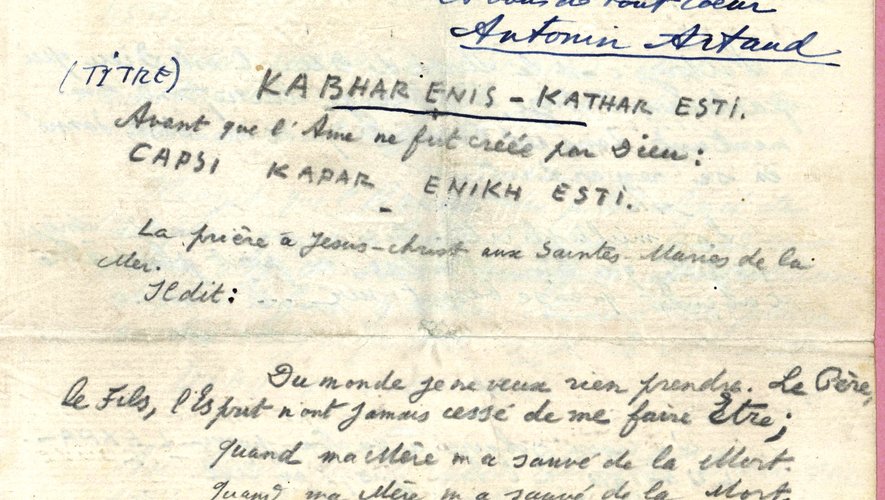 et vous de tout coeur
Antonin Artaud
(TITRE)
KABHAR ENIS - KATHAR ESTI.
Avant que l'Ame ne fut créée par Dieu:
CAPSI KAPAR ENIKH ESTI.
La prière à Jesus-christ aux Saintes-Maries de la
Mer.
Il dit:
Du monde je ne veux rien prendre. Le Père,
le Fils, l'Esprit n'ont jamais cessé de me faire Être;
quand ma Mère m'a sauvé de la Mort.
quand ma Mère m'a sauvé de la Mort